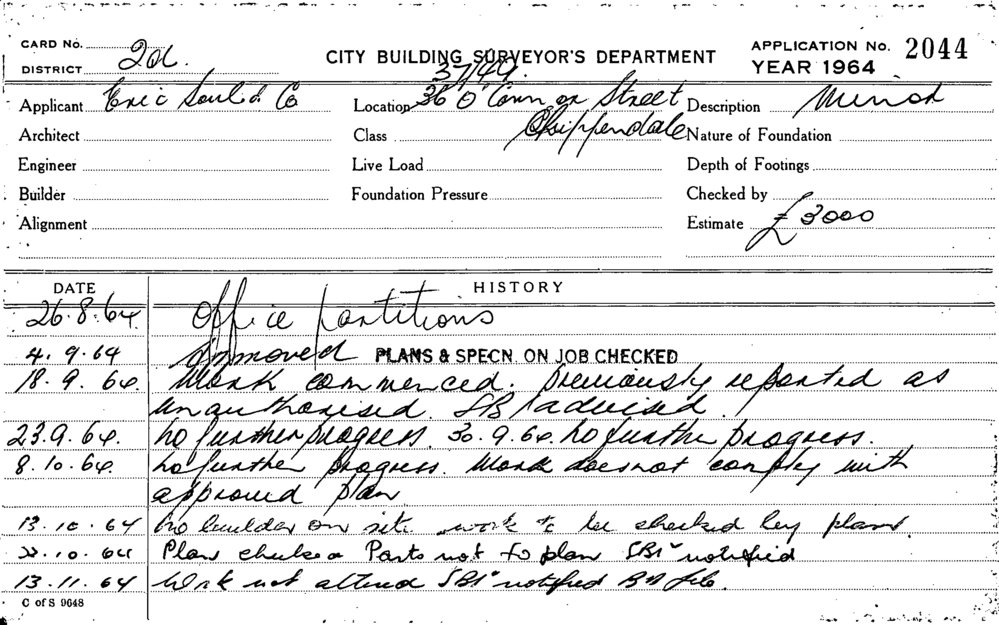 CARD No.
DISTRICT 2a
CITY BUILDING SURVEYOR'S DEPARTMENT
APPLICATION No. 2044
YEAR 1964
37/49
Applicant Eric Co
Location 36 O'Connor Street
Chippendale
Description Minor
Architect
Class
Nature of Foundation
Engineer
Live Load
Depth of Footings
Builder
Foundation Pressure
Checked by
Alignment
Estimate £3000
DATE
HISTORY
26.8.64 Office partitions
4.9.64 Approved PLANS & SPECN. ON JOB CHECKED
18.9.64. Work commenced. Previously reported as
unauthorised. SBI advised.
23.9.64. No further progress. 30.9.64. No further progress.
8.10.64. No further progress. Work does not comply with
approved plan
13.10.64 No builder on site work to be checked by plan.
22.10.64 Plan checked Parts not to plan SBI notified
13.11.64 Work not altered SBI notified
C of S 9648